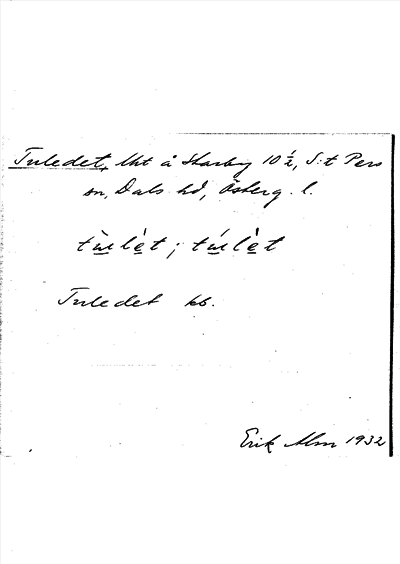 Tuledet, lht å Skarby 10 ½, S:t Pers
sn, Dals hd, Österg. l.
tùlèt ; túlèt
Tuledet kb.
Erik Alm 1932